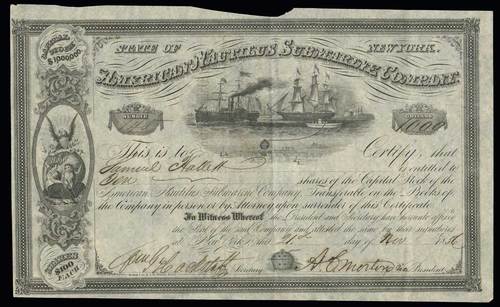 STATE OF NEW YORK.
AMERICAN NAUTILUS SUBMARINE COMPANY.
CAPITAL
$1000000.
NUMBER
1000
This is to Certify, that
Samuel Hallett is entitled to
Ten shares of the Capital Stock of the
American Nautilus Submarine Company Transferable on the Books of
the Company in person or by Attorney upon surrender of this Certificate
In Witness Whereof the President and Secretary have hereunto affixed
the Seal of the said Company and attested the same by their signatures
at New York this 21st day of Nov 18
Secretary A. C. Morton President
SHARES
$100
EACH